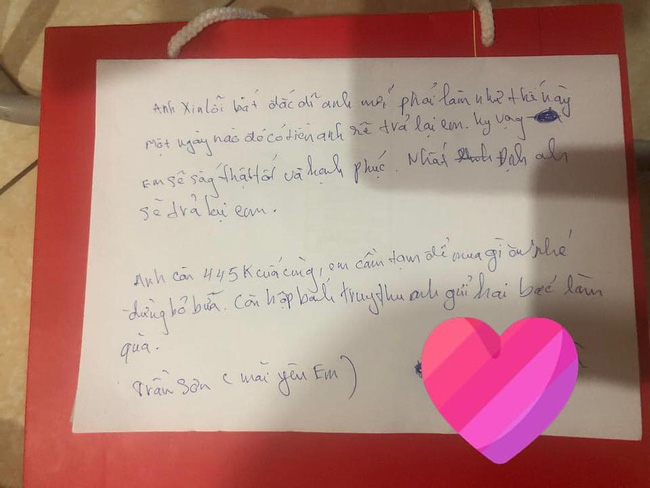 Anh xin lỗi bất đắc dĩ anh mới phải làm như thế này
một ngày nào đó có tiền anh sẽ trả lại em. Hy vọng
em sẽ sống thật tốt và hạnh phúc. Nhất định anh
sẽ trả lại em.
Anh còn 445K cuối cùng, em cầm tạm để mua gì ăn nhé
đừng bỏ bữa. Còn hộp bánh trung thu anh gửi hai bác làm
quà.
Trần Sơn (mãi yêu Em)